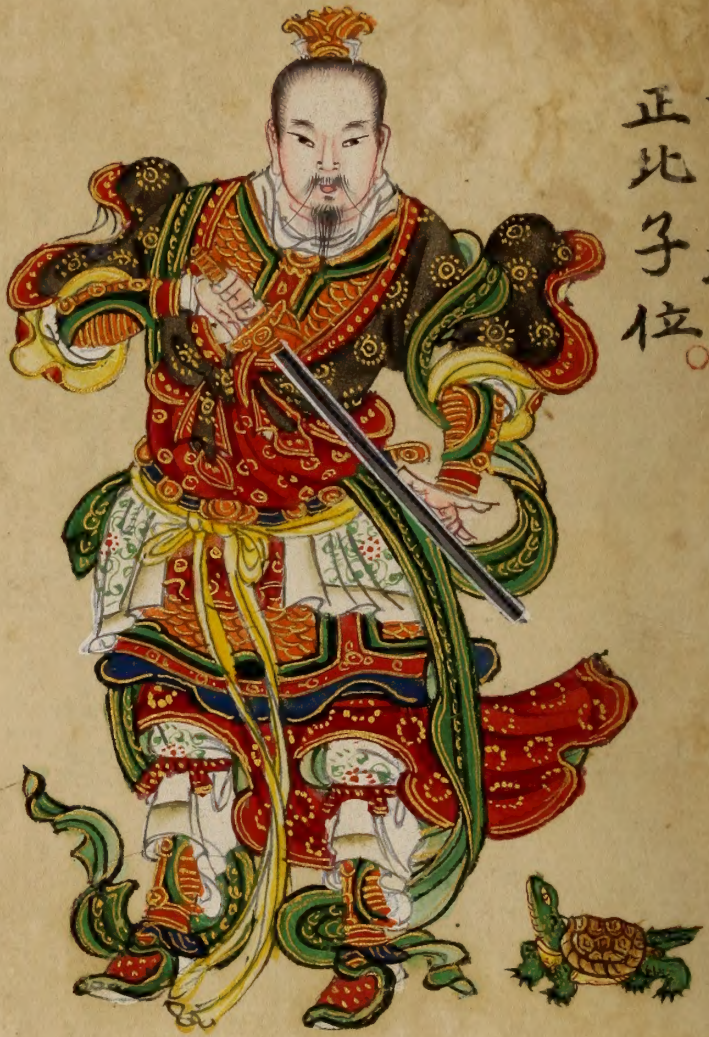 正北子位